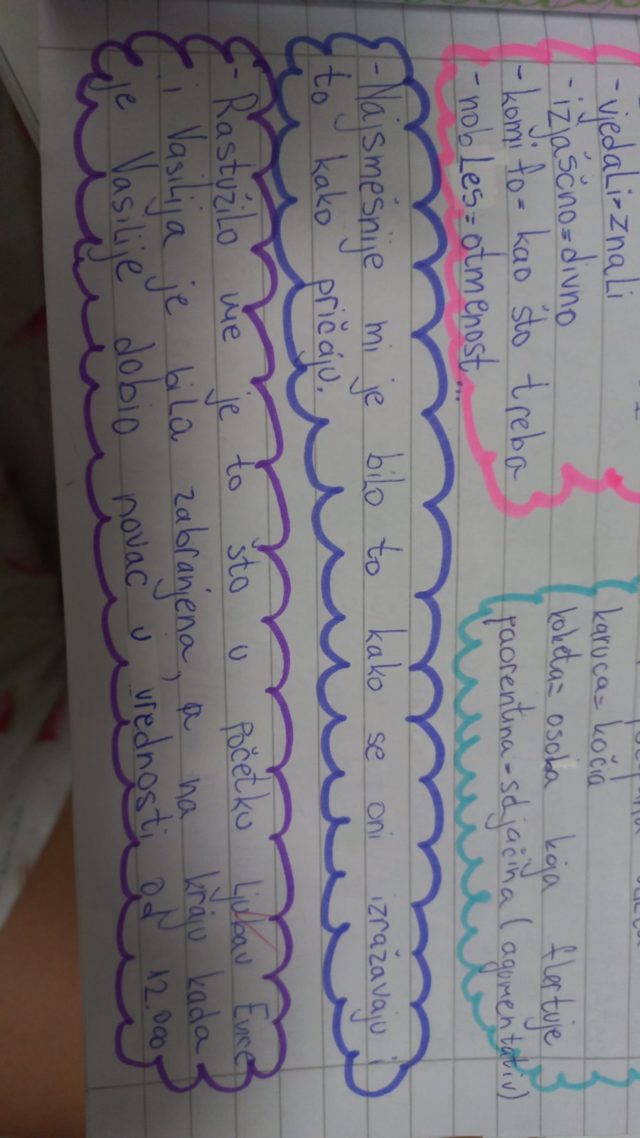 - vjedali=znali
- izjaščno=divno
- komi fo= kao što treba
- nobles=otmenost...
karuca=kočia
koketa= osoba koja flertuje
paorentina=seljačina (agumentativ)
- Najsmešnije mi je bilo to kako se oni izražavaju i
to kako pričaju.
- Rastužilo me je to što u početku ljubav Evice
i Vasilija je bila zabranjena, a na kraju kada
je Vasilije dobio novac u vrednosti od 12.000